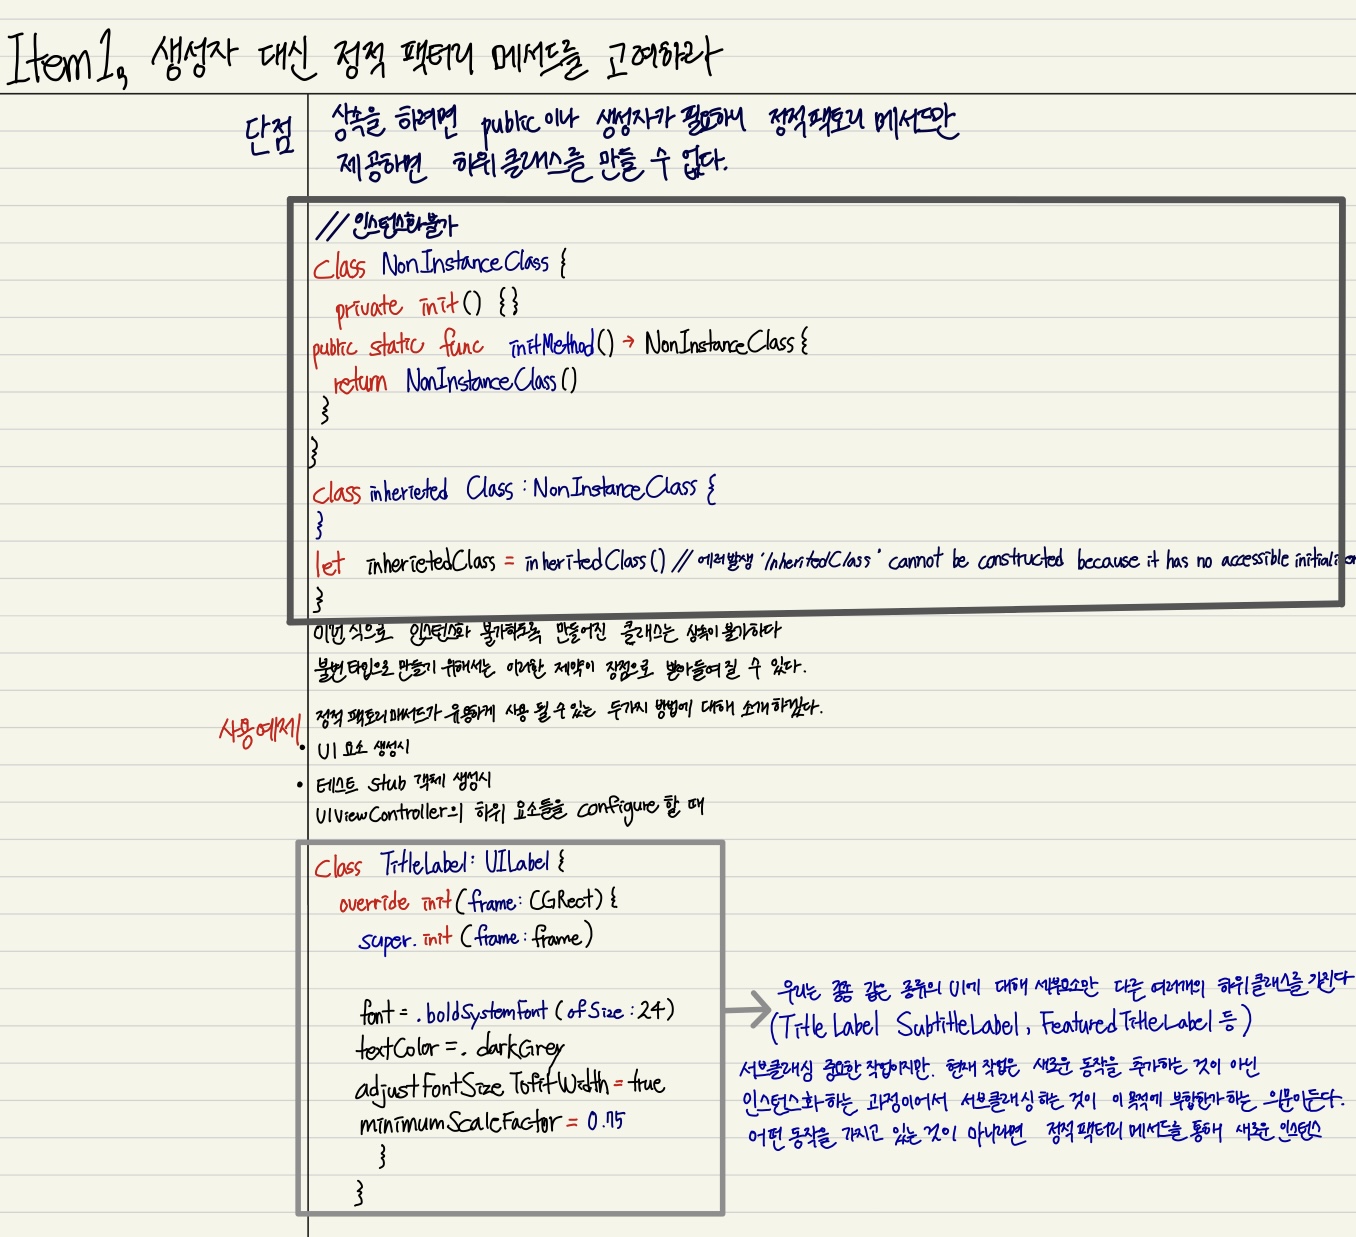 Item1, 생성자 대신 정적 팩터리 메서드를 고려하라
단점
상속을 하려면 public이나 생성자가 필요하니 정적팩토리 메서드만
제공하면 하위클래스를 만들 수 없다.
// 인스턴스화불가
class NonInstanceClass {
private init() {}
public static func initMethod() → NonInstanceClass{
return NonInstanceClass()
}
}
class inherieted Class : NonInstanceClass {
}
let inherietedClass = inheritedClass() // 에러발생 'InheritedClass' cannot be constructed because it has no accessible
}
이런 식으로 인스턴스화 불가하도록 만들어진 클래스는 상속이 불가하다
불변타입으로 만들기 위해서는 이러한 제약이 장점으로 받아들여 질 수 있다.
사용예제
정적 팩토리메서드가 유용하게 사용 될 수 있는 두가지 방법에 대해 소개하겠다.
• UI 요소 생성시
• 테스트 stub 객체 생성시
UIViewController의 하위 요소들을 configure 할 때
class TitleLabel: UILabel {
override init(frame: CGRect) {
super. init (frame: frame)
font = .boldSystemFont (ofSize : 24)
textColor = . darkGrey
adjustFontSize TofitWidth = true
minimumScaleFactor = 0.75
}
}
우리는 종종 같은 종류의 UI에 대해 세부요소만 다른 여러개의 하위클래스를 가진다
(Title Label SubtitleLabel, FeaturedTitleLabel 등)
서브클래싱 중요한 작업이지만. 현재 작업은 새로운 동작을 추가하는 것이 아닌
인스턴스화 하는 과정이어서 서브클래싱 하는 것이 이 목적에 부합한가 하는 의문이든다.
어떤 동작을 가지고 있는 것이 아니라면 정적 팩터리 메서드를 통해 새로운 인스턴스